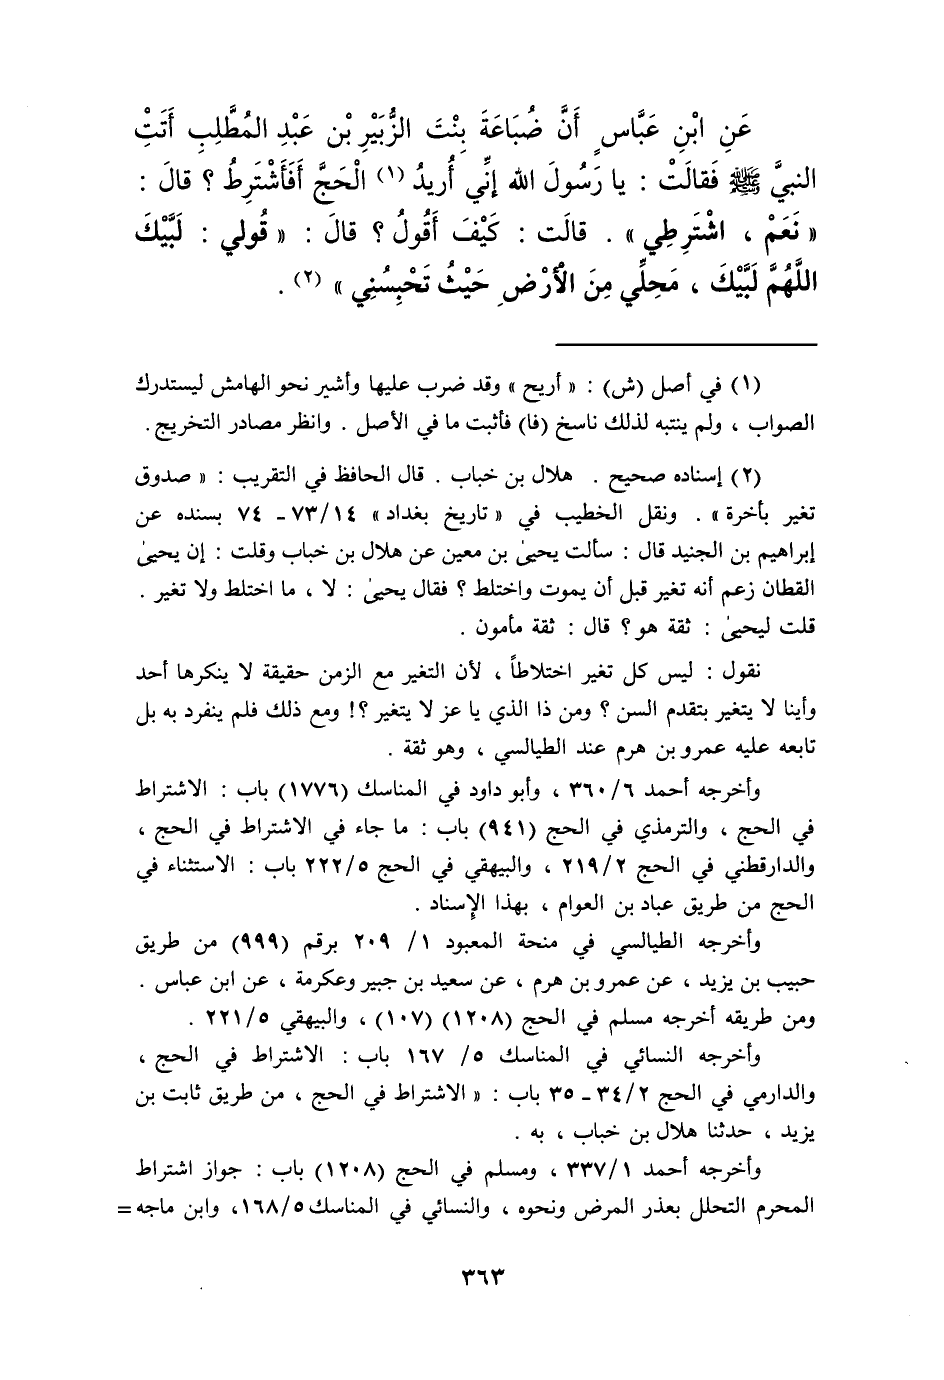 عَنِ ابْنِ عَبَّاسٍ أَنَّ ضُبَاعَةَ بِنْتَ الزُّبَيْرِ بْنِ عَبْدِ المُطَّلِبِ أَتَتِ
النبيَّ ﷺ فَقالَتْ : يا رَسُولَ الله إِنِّي أُرِيدُ (١) الْحَجَّ أَفَأَشْتَرِطُ ؟ قالَ :
« نَعَمْ ، اشْتَرِطِي » . قالَت : كَيْفَ أَقُولُ ؟ قالَ : « قُولي : لَبَّيْكَ
اللَّهُمَّ لَبَّيْكَ ، مَحِلِّي مِنَ الْأَرْضِ حَيْثُ تَحْبِسُنِي » (٢) .
(١) في أصل (ش) : « أريح » وقد ضرب عليها وأشير نحو الهامش ليستدرك
الصواب ، ولم ينتبه لذلك ناسخ (فا) فأثبت ما في الأصل . وانظر مصادر التخريج .
(٢) إسناده صحيح . هلال بن خباب . قال الحافظ في التقريب : « صدوق
تغير بأخرة » . ونقل الخطيب في « تاريخ بغداد » ١٤/ ٧٣ - ٧٤ بسنده عن
إبراهيم بن الجنيد قال : سألت يحيىٰ بن معين عن هلال بن خباب وقلت : إن يحيىٰ
القطان زعم أنه تغير قبل أن يموت واختلط ؟ فقال يحيىٰ : لا ، ما اختلط ولا تغير .
قلت ليحيىٰ : ثقة هو ؟ قال : ثقة مأمون .
نقول : ليس كل تغير اختلاطاً ، لأن التغير مع الزمن حقيقة لا ينكرها أحد
وأينا لا يتغير بتقدم السن ؟ ومن ذا الذي يا عز لا يتغير ؟! ومع ذلك فلم ينفرد به بل
تابعه عليه عمرو بن هرم عند الطيالسي ، وهو ثقة .
وأخرجه أحمد ٦/ ٣٦٠ ، وأبو داود في المناسك (١٧٧٦) باب : الاشتراط
في الحج ، والترمذي في الحج (٩٤١) باب : ما جاء في الاشتراط في الحج ،
والدارقطني في الحج ٢/ ٢١٩ ، والبيهقي في الحج ٥/ ٢٢٢ باب : الاستثناء في
الحج من طريق عباد بن العوام ، بهذا الإسناد .
وأخرجه الطيالسي في منحة المعبود ١/ ٢٠٩ برقم (٩٩٩) من طريق
حبيب بن يزيد ، عن عمرو بن هرم ، عن سعيد بن جبير وعكرمة ، عن ابن عباس .
ومن طريقه أخرجه مسلم في الحج (١٢٠٨) (١٠٧) ، والبيهقي ٥/ ٢٢١ .
وأخرجه النسائي في المناسك ٥/ ١٦٧ باب : الاشتراط في الحج ،
والدارمي في الحج ٢/ ٣٤ - ٣٥ باب : « الاشتراط في الحج ، من طريق ثابت بن
يزيد ، حدثنا هلال بن خباب ، به .
وأخرجه أحمد ١/ ٣٣٧ ، ومسلم في الحج (١٢٠٨) باب : جواز اشتراط
المحرم التحلل بعذر المرض ونحوه ، والنسائي في المناسك ٥/ ١٦٨ ، وابن ماجه =
٣٦٣